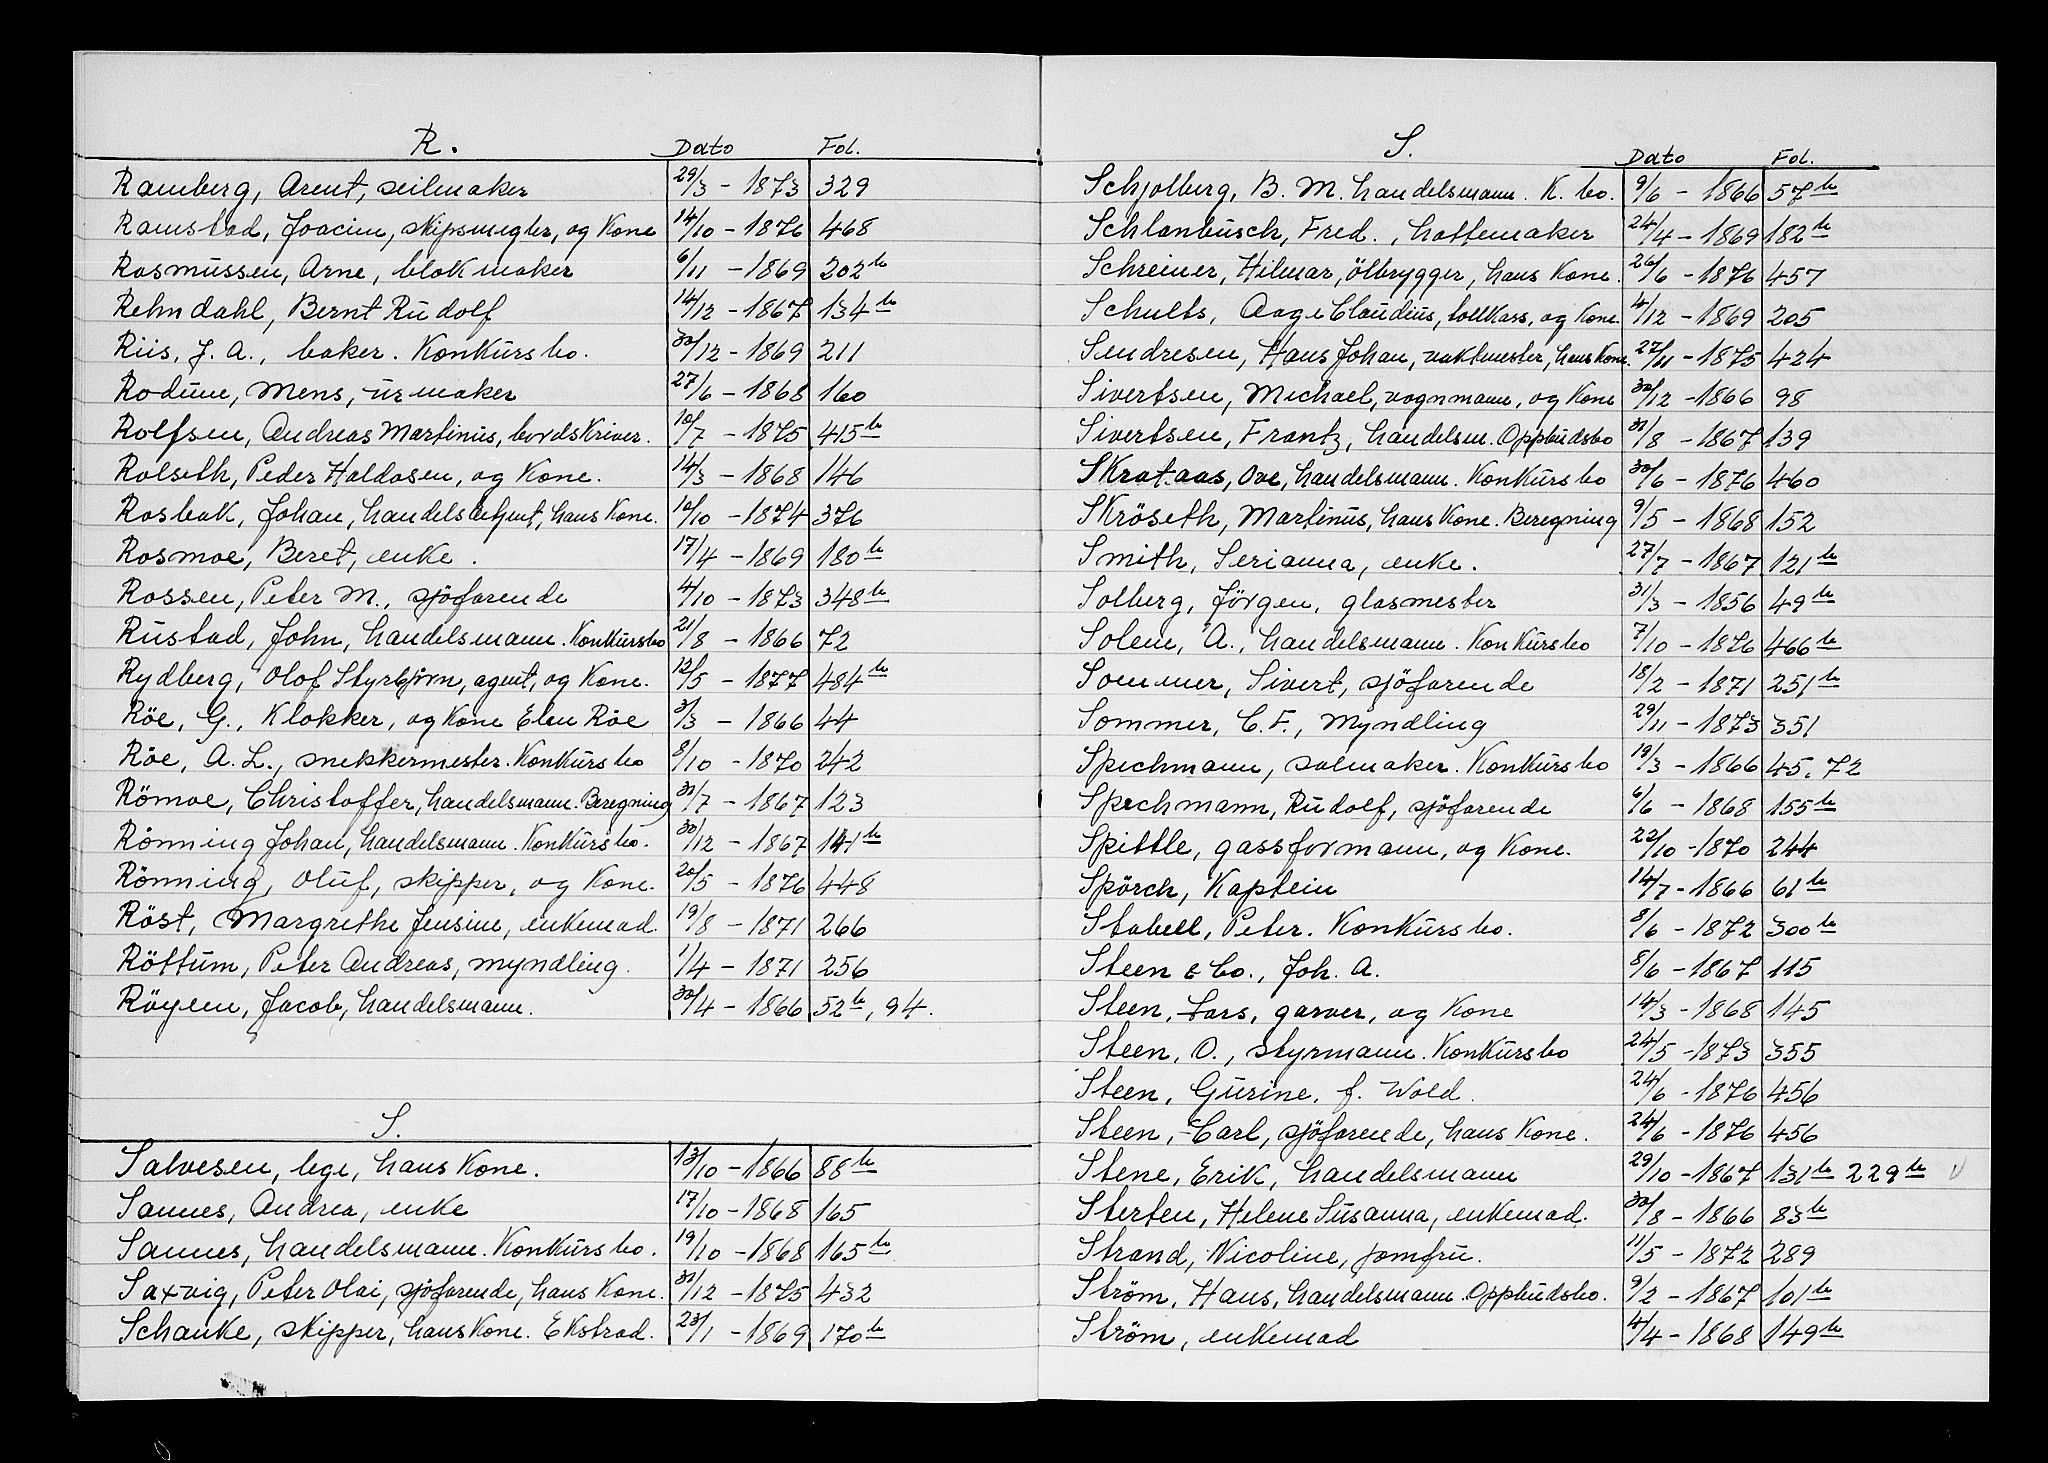 R. Dato Fol.
Ramberg, Arent, seilmaker 29/3 - 1873 329
Ramstad, Joacim, skipsmegler, og Kone 14/10 - 1876 468
Rasmussen, Arne, blokmaker 6/11 - 1869 202b
Rehndahl, Bernt Rudolf 14/12 - 1867 134b
Riis, J. A., baker. Konkursbo. 30/12 - 1869 211
Rodum, Mens, urmaker 27/6 - 1868 160
Rolfsen, Andreas Martinus, bordskriver. 10/7 - 1875 415b
Rolseth, Peder Haldosen, og Kone. 14/3 - 1868 146
Rosbak, Johan, handelsbetjent, hans Kone. 10/10 - 1874 376
Rosmoe, Beret, enke. 17/4 - 1869 180b
Rossen, Peter M., sjöfarende 4/10 - 1873 348b
Rustad, John, handelsmann. Konkursbo 21/8 - 1866 72
Rydberg, Olof Styrbjörn, agent, og Kone. 12/5 - 1877 484b
Röe, G., Klokker, og Kone Elen Röe 3/3 - 1866 44
Röe, A. L., snekkermester. Konkursbo 8/10 - 1870 242
Römoe, Christoffer, handelsmann. Beregning 31/7 - 1867 123
Rönning Johan, handelsmann. Konkursbo. 30/12 - 1867 141b
Rönning, Oluf, skipper, og Kone. 20/5 - 1876 448
Röst, Margrethe Jensine, enkemad. 19/8 - 1871 266
Röttum, Peter Andreas, myndling. 1/4 - 1871 256
Röyem, Jacob, handelsmann. 30/4 - 1866 52b, 94.
S.
Salvesen, lege, hans Kone. 13/10 - 1866 88b
Sannes, Andrea, enke 17/10 - 1868 165
Sannes, handelsmann. Konkursbo. 19/10 - 1868 165b
Saxvig, Peter Olai, sjöfarende, hans Kone. 31/12 - 1875 432
Schanke, skipper, hans Kone. Ekstrad. 23/1 - 1869 170b
S. Dato Fol.
Schjolberg, B. M. handelsmann. K. bo. 9/6 - 1866 57b
Schlanbusch, Fred., hattemaker 24/4 - 1869 182b
Schreiner, Hilmar, ölbrygger, hans Kone. 26/6 - 1876 457
Schults, Aage Claudius, tollkass, og Kone. 4/12 - 1869 205
Sendresen, Hans Johan, vaktmester, hans Kone. 27/11 - 1875 424
Sivertsen, Michael, vognmann, og Kone 30/12 - 1866 98
Sivertsen, Frantz, handelsm. Oppbudsbo 31/8 - 1867 139
Skrataas, Ove, handelsmann. Konkursbo 30/6 - 1876 460
Skröseth, Martinus, hans Kone. Beregning 9/5 - 1868 152
Smith, Serianna, enke. 27/7 - 1867 121b
Solberg, Jörgen, glasmester 31/3 - 1856 49b
Solem, A., handelsmann. Konkursbo 7/10 - 1876 466b
Sommer, Sivert, sjöfarende 18/2 - 1871 251b
Sommer, C. F., Myndling 29/11 - 1873 351
Spechmann, salmaker. Konkursbo 19/3 - 1866 45, 72
Spechmann, Rudolf, sjöfarende 6/6 - 1868 155b
Spittle, gassformann, og Kone. 22/10 - 1870 244
Spörch, Kaptein 14/7 - 1866 61b
Stabell, Peter. Konkursbo. 8/6 - 1872 300b
Steen & Co., Joh. A. 8/6 - 1867 115
Steen, Lars, garver, og Kone 14/3 - 1868 145
Steen, O., styrmann. Konkursbo 24/5 - 1873 355
Steen, Gurine, f. Wold. 24/6 - 1876 456
Steen, Carl, sjöfarende, hans Kone. 24/6 - 1876 456
Stene, Erik, handelsmann 29/10 - 1867 131b 229b
Sterten, Helene Susanna, enkemad. 30/8 - 1866 83b
Strand, Nicoline, jomfru. 11/5 - 1872 289
Ström, Hans, handelsmann. Oppbudsbo. 9/2 - 1867 101b
Ström, enkemad 4/4 - 1868 149b